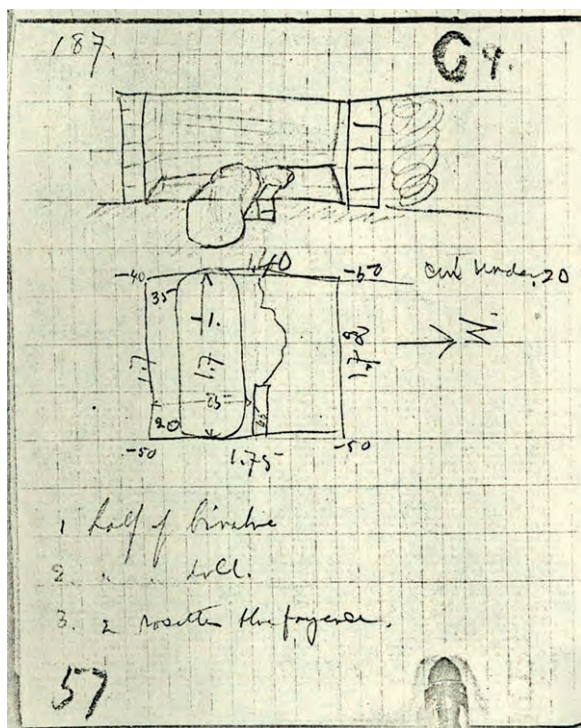 187.
C 9.
-40
1.40
-50
cut under .20
35
1.
1.7
1.7
1.78
N.
.65
20
-50
1.75
-50
1 half of bivalve
2 " " doll.
3. 2 rosettes blue fayence.
57